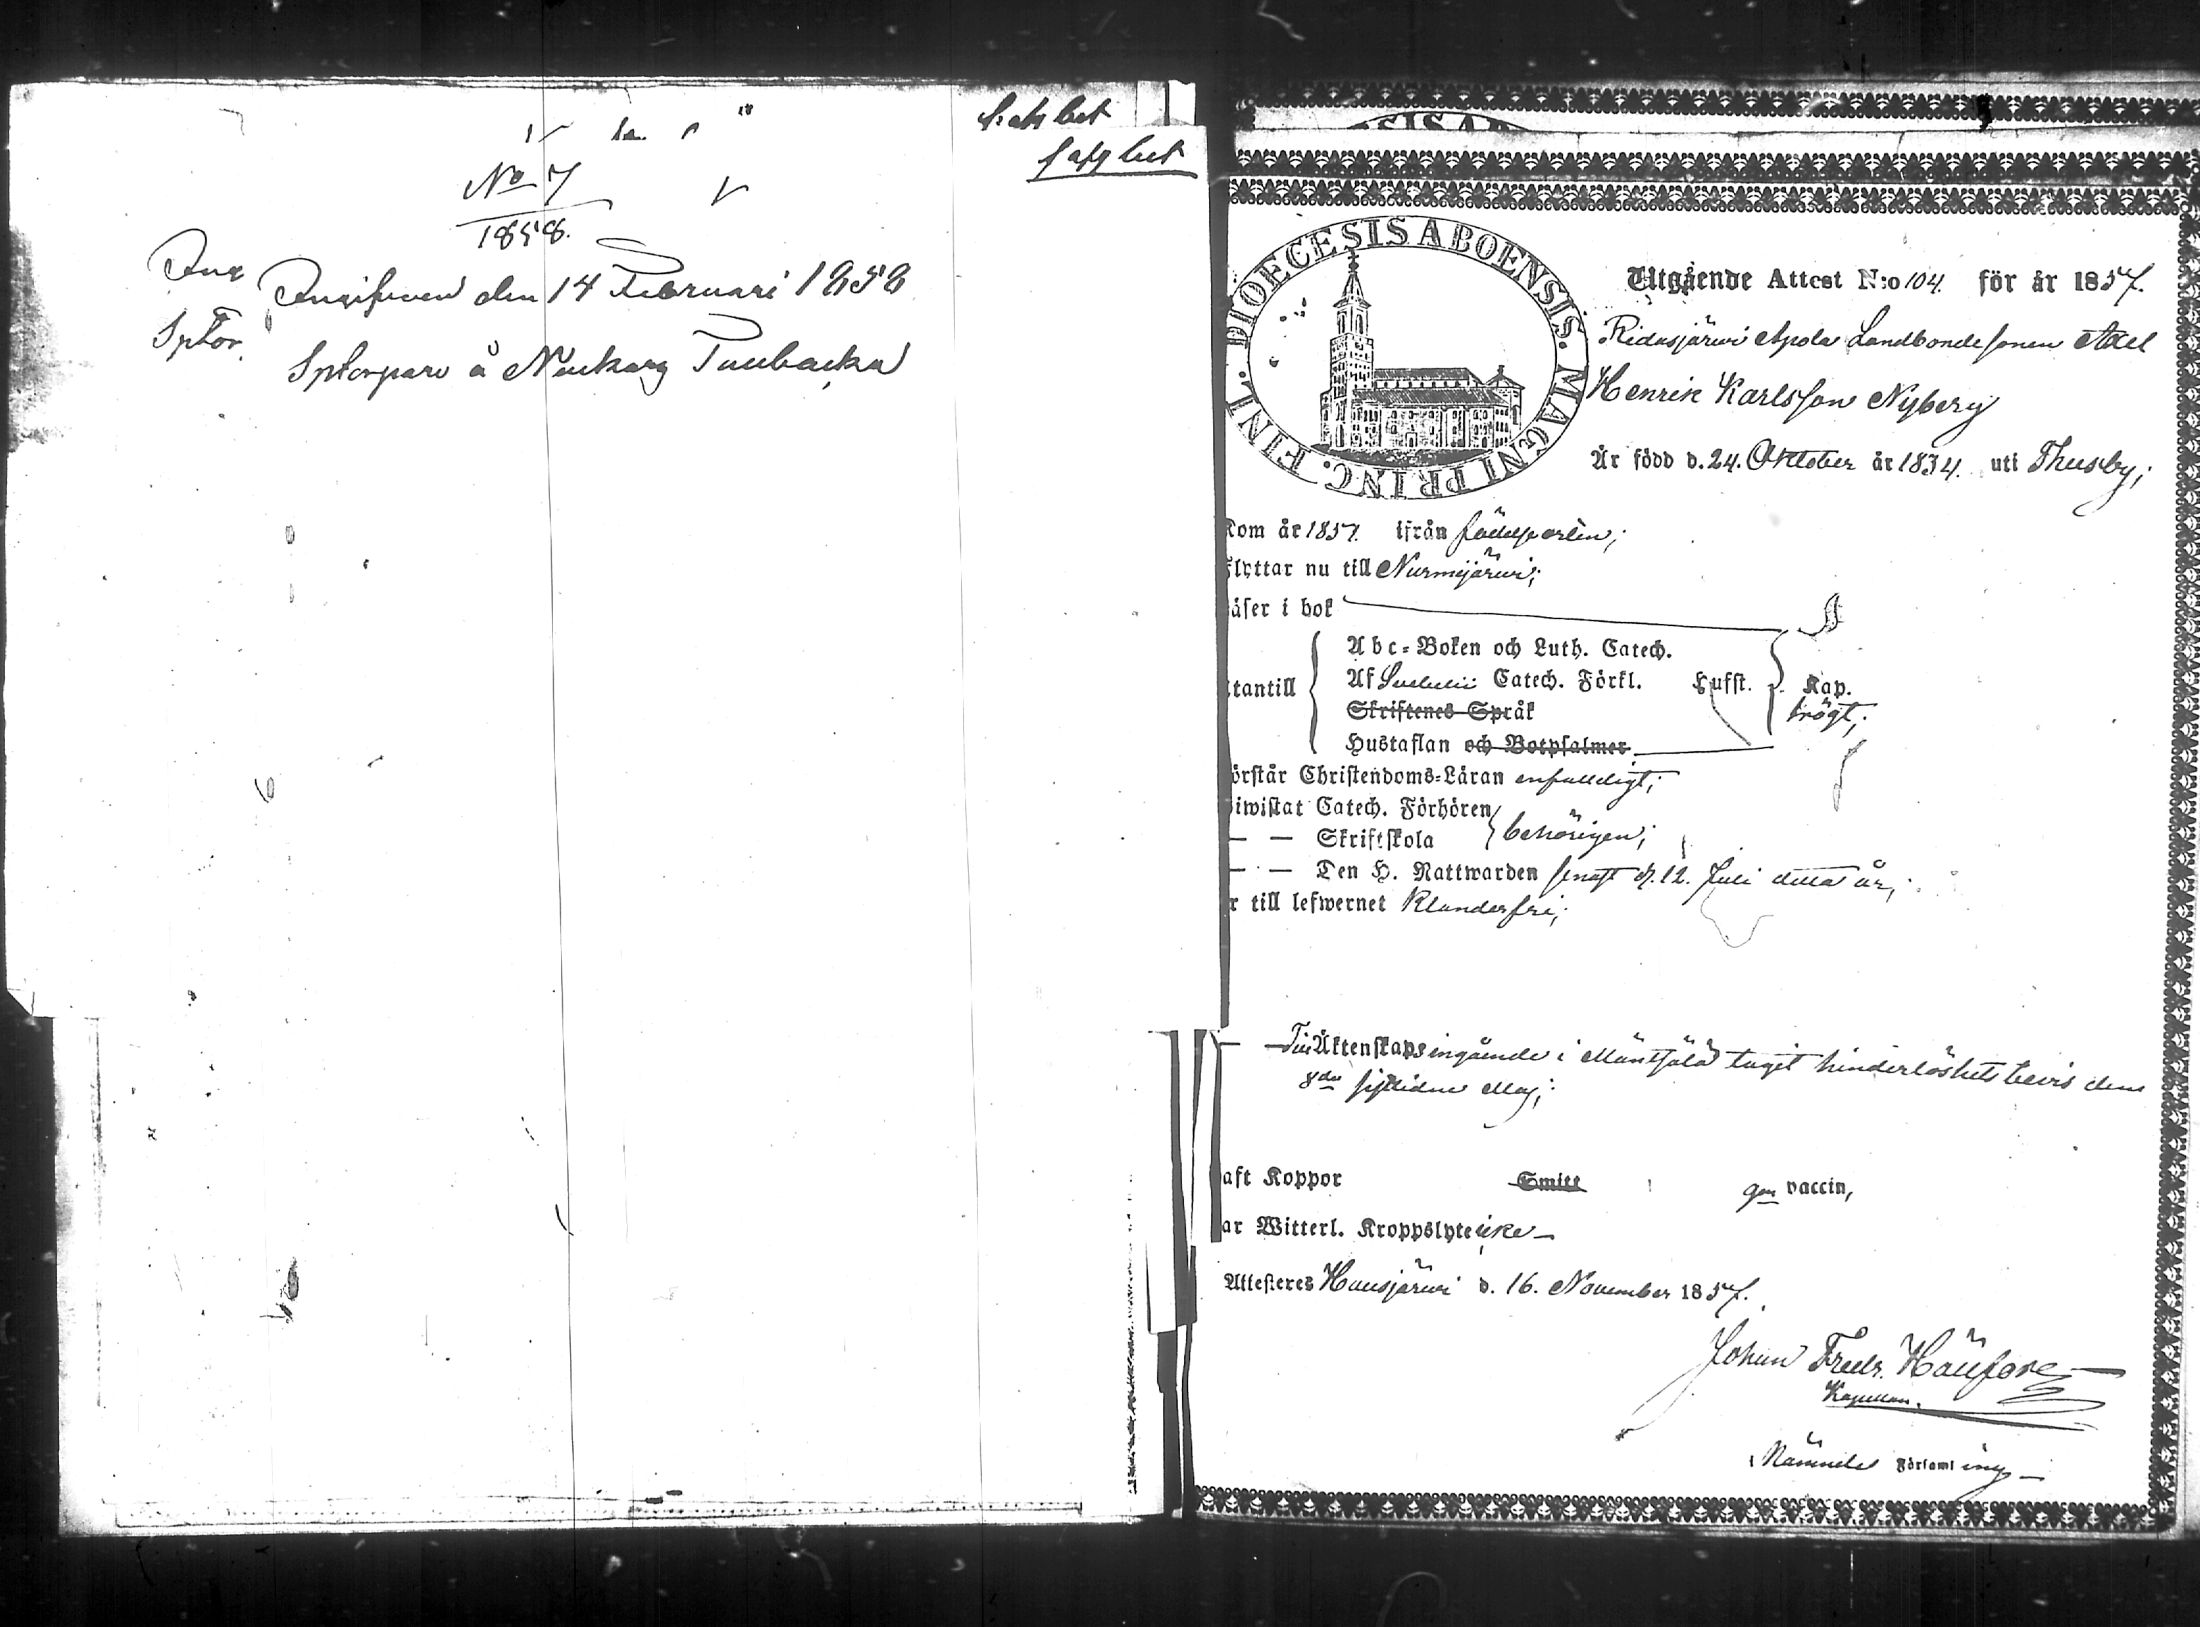 No 7
1858.
Angifwen den 14 Februari 1858
Sptorpare å Nackars Tuubacka
DIOECESIS ABOENSIS. MAGNI PRINC. FINL.
Utgående Attest N:o 104. för år 1857.
Ridasjärwi Apola Landbondesonen Axel
Henrik Karlsson Nyberg
Är född d. 24. Oktober år 1834. uti Thusby;
Kom år 1857. ifrån födelseorten;
Flyttar nu till Nurmijärwi;
äser i bok
Abc-Boken och Luth. Catech.
tantill Af Svebelii Catech. Förkl. Hufst. Kap.
Skriftenes Språk trögt;
Hustaflan och Botpsalmer
örstår Christendoms-Läran enfaldigt;
iwistat Catech. Förhören
— — Skriftskola behörigen;
— — Den H. Nattwarden senast d. 12. Juli detta år;
r till lefwernet klanderfri;
— — Till Äktenskaps ingående i Mäntsälä tagit hinderlöshets bevis den
8de sistlidne Maj;
aft Koppor Smitt gm vaccin,
ar Witterl. Kroppslyte icke —
Attesteres Hausjärwi d. 16. November 1857.
Johan Fredr.
Kapellan.
Nämnde Församling —